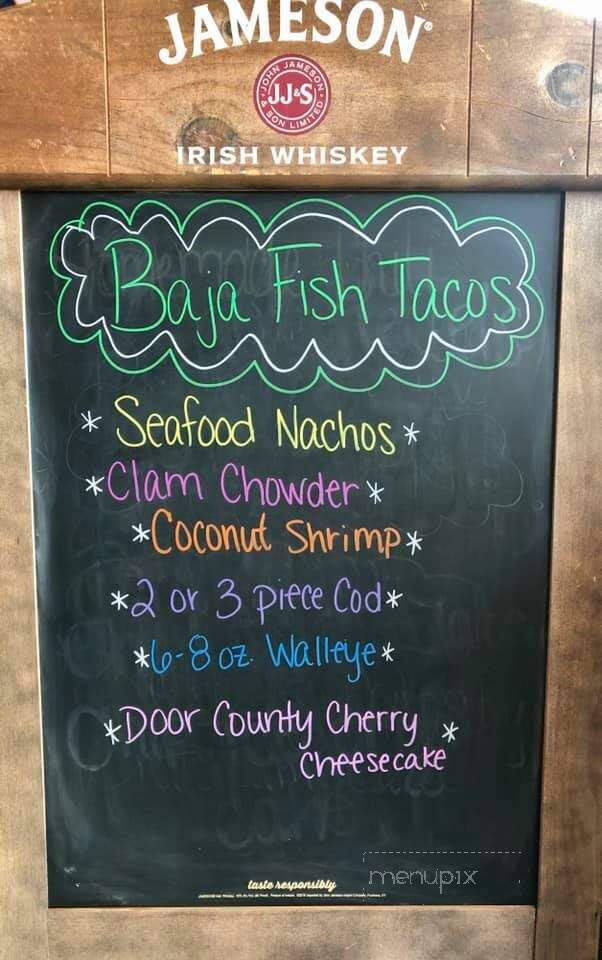 JAMESON®
JOHN JAMESON
JJ&S
& SON LIMITED
IRISH WHISKEY
Baja Fish Tacos
* Seafood Nachos *
* Clam Chowder *
* Coconut Shrimp *
* 2 or 3 piece Cod *
* 6-8 oz. Walleye *
* Door County Cherry *
Cheesecake
taste responsibly
menupix